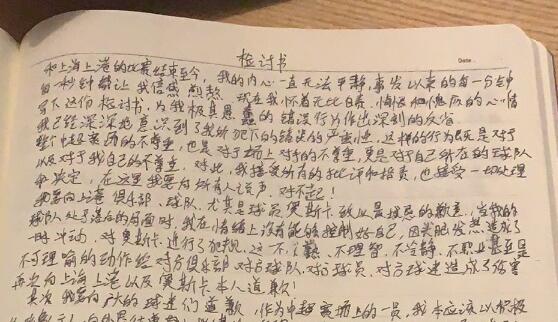 检讨书
Date
和上海上港的比赛结束至今，我的内心一直无法平静，事发以来的每一分钟
每一秒钟都让我倍感煎熬。现在我怀着无比自责、悔恨和愧疚的心情
写下这份检讨书，为我极其愚蠢的错误行为作出深刻的反省
我已经深深地意识到了我所犯下的错误的严重性，这样的行为既是对于
整个中超联赛的不尊重，也是对于场上对手的不尊重，更是对于自己所在的球队
以及对于我自己的不尊重，对此，我接受所有的批评和指责，也接受一切处理
和决定，在这里我要向所有人说声，对不起！
我要向上港俱乐部、球队、尤其是球员奥斯卡致以最诚恳的歉意，当我的
球队处于落后的局面时，我在情绪上没有能够控制好自己，因头脑发热造成了
一时冲动，对奥斯卡进行了犯规，这一不道德、不理智、不冷静、不职业甚至是
不可理喻的动作给对方俱乐部对方球队、对方球员、对方球迷造成了伤害
再次向上海上港以及奥斯卡本人道歉！
其次，我要向广大的球迷们道歉，作为中超赛场上的一员，我本应该以积极